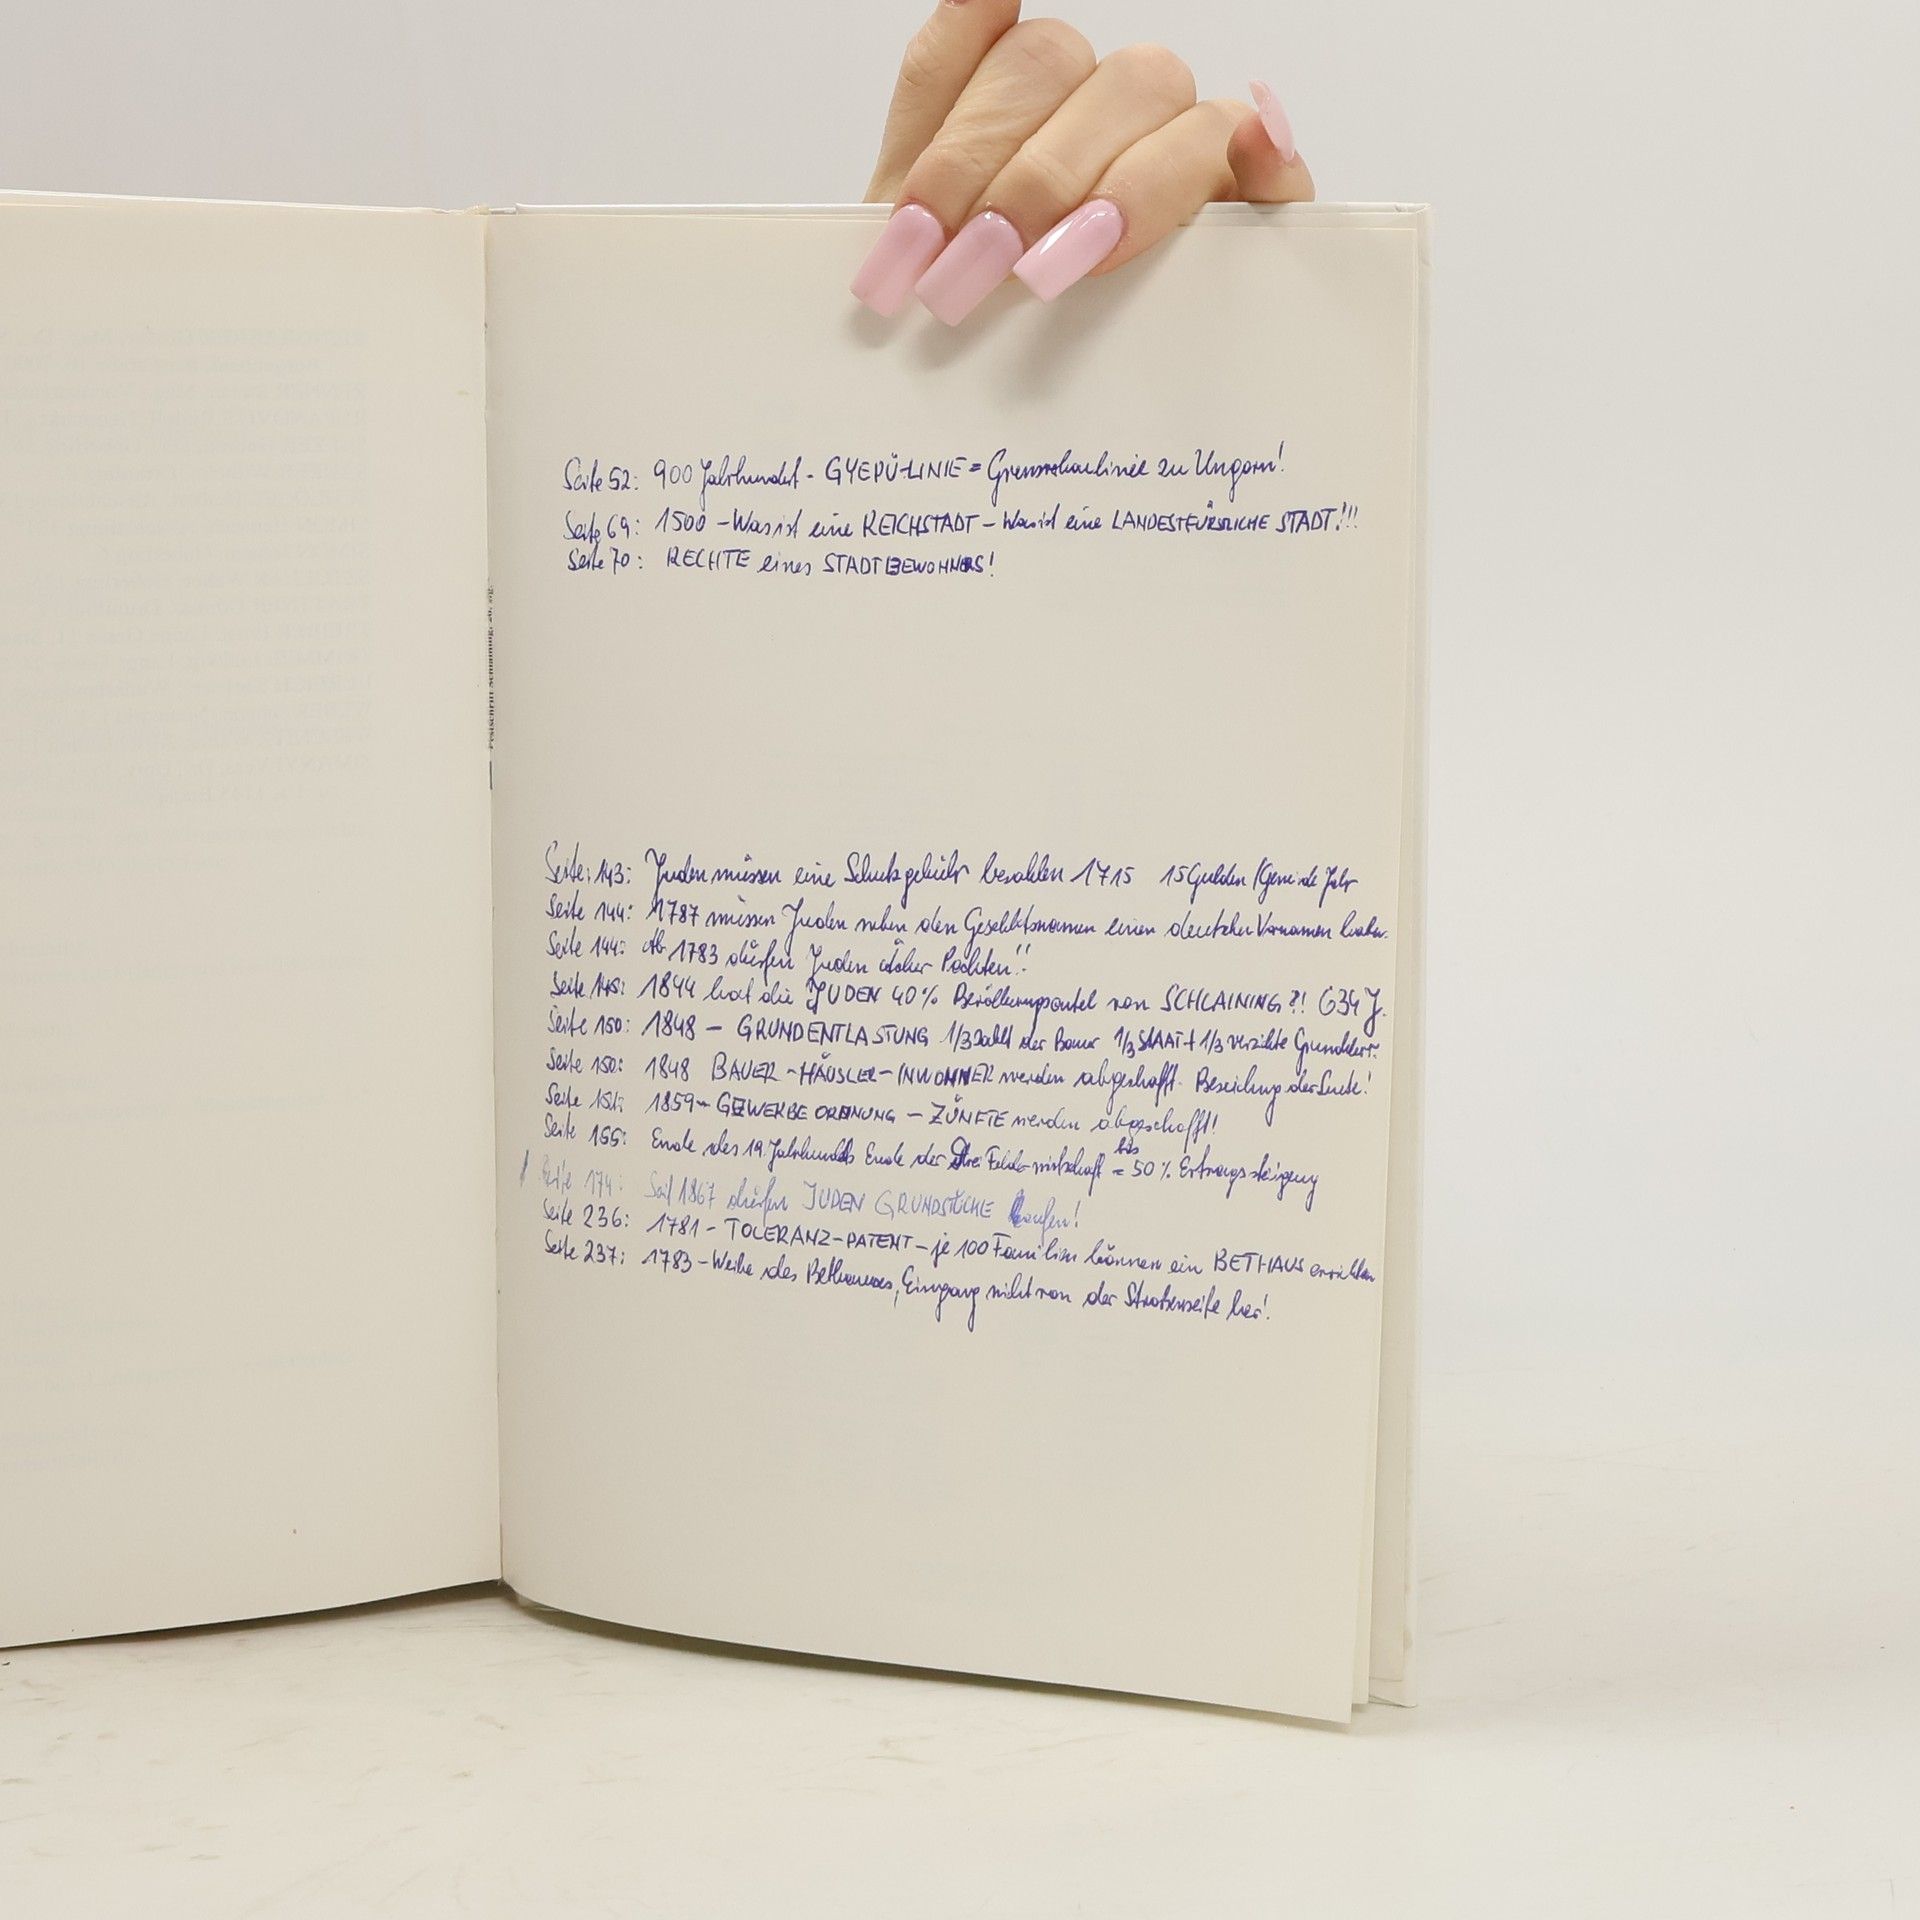 Seite 52: 900 Jahrhundert - GYEPÜ-LINIE = zu Ungarn!
Seite 69: 1500 - Was ist eine REICHSTADT - Was ist eine LANDESFÜRSTLICHE STADT!!!
Seite 70: RECHTE eines STADTBEWOHNERS!
Festschrift Schlaining, 20. sig.
Seite: 143: Juden müssen eine Schutzgebühr bezahlen 1715 15 Gulden / Jahr
Seite 144: 1787 müssen Juden neben den einen deutschen Vornamen haben.
Seite 144: Ab 1783 dürfen Juden Äcker Pachten!!
Seite 145: 1844 hat die JUDEN 40% von SCHLAINING?! 634 J.
Seite 150: 1848 - GRUNDENTLASTUNG 1/3 zahlt der Bauer 1/3 STAAT + 1/3 Grundherr.
Seite 150: 1848 BAUER - HÄUSLER - INWOHNER werden abgeschafft. der Leute!
Seite 151: 1859 - GEWERBEORDNUNG - ZÜNFTE werden abgeschafft!
Seite 155: Ende des 19. Jahrhunderts Ende der Drei Felderwirtschaft = bis 50% Ertragssteigung
Seite 174: Seit 1867 dürfen JUDEN GRUNDSTÜCKE kaufen!
Seite 236: 1781 - TOLERANZ-PATENT - je 100 Familien können ein BETHAUS errichten
Seite 237: 1783 - Weihe des Bethauses, Eingang nicht von der Straßenseite her!